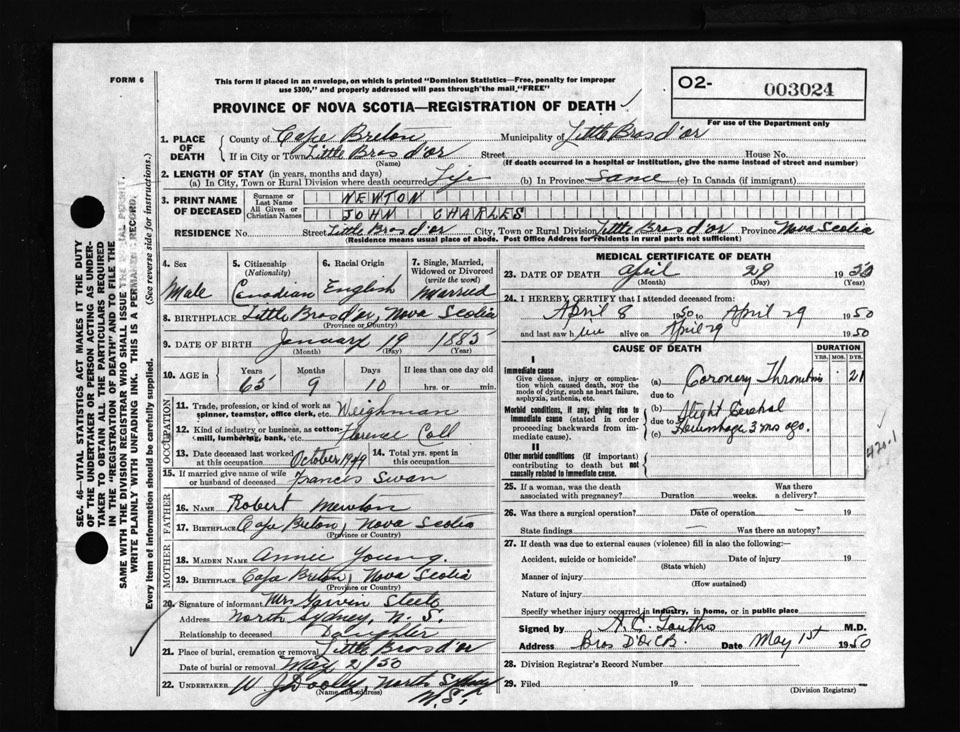 FORM 6
This form if placed in an envelope, on which is printed "Dominion Statistics—Free, penalty for improper
use $300," and properly addressed will pass through the mail "FREE"
PROVINCE OF NOVA SCOTIA—REGISTRATION OF DEATH
O2- 003024
For use of the Department only
1. PLACE OF DEATH
County of Cape Breton Municipality of Little Bras d'or
If in City or Town Little Bras d'or Street House No.
(Name) (If death occurred in a hospital or institution, give the name instead of street and number)
2. LENGTH OF STAY (in years, months and days)
(a) In City, Town or Rural Division where death occurred Life (b) In Province Same (c) In Canada (if immigrant)
3. PRINT NAME OF DECEASED
Surname or Last Name NEWTON
All Given or Christian Names JOHN CHARLES
RESIDENCE No. Street Little Bras d'or City, Town or Rural Division Little Bras d'or Province Nova Scotia
(Residence means usual place of abode. Post Office Address for residents in rural parts not sufficient)
4. Sex Male
5. Citizenship (Nationality) Canadian
6. Racial Origin English
7. Single, Married, Widowed or Divorced (write the word) Married
8. BIRTHPLACE Little Bras d'or, Nova Scotia
(Province or Country)
9. DATE OF BIRTH January 19 1885
(Month) (Day) (Year)
10. AGE in Years Months Days If less than one day old
65 9 10 hrs. or min.
OCCUPATION
11. Trade, profession, or kind of work as
spinner, teamster, office clerk, etc. Weighman
12. Kind of industry or business, as cotton-
mill, lumbering, bank, etc. Florence Coll
13. Date deceased last worked at this occupation October 1949
14. Total yrs. spent in this occupation
15. If married give name of wife
or husband of deceased Frances Swan
FATHER
16. Name Robert Newton
17. Birthplace Cape Breton, Nova Scotia
(Province or Country)
MOTHER
18. MAIDEN NAME Annie Young.
19. Birthplace Cape Breton, Nova Scotia
(Province or Country)
20. Signature of informant Mrs Garvin Steele
Address North Sydney, N. S.
Relationship to deceased Daughter
21. Place of burial, cremation or removal Little Bras d'or
Date of burial or removal May 2/50
22. UNDERTAKER W J Dooley, North Sydney N.S.
(Name and address)
MEDICAL CERTIFICATE OF DEATH
23. DATE OF DEATH April 29 1950
(Month) (Day) (Year)
24. I HEREBY CERTIFY that I attended deceased from:
April 8 1950 to April 29 1950
and last saw him alive on April 29 1950
CAUSE OF DEATH DURATION
YRS. MOS. DYS.
I
Immediate cause
Give disease, injury or complication which caused death, NOT the mode of dying, such as heart failure, asphyxia, asthenia, etc.
(a) Coronary Thrombosis 21
due to
Morbid conditions, if any, giving rise to immediate cause (stated in order proceeding backwards from immediate cause).
(b) Slight Cerebral
due to
(c) Hemorrhage 3 mos ago.
II
Other morbid conditions (if important) contributing to death but not causally related to immediate cause.
420.1
25. If a woman, was the death associated with pregnancy? Duration weeks. Was there a delivery?
26. Was there a surgical operation? — Date of operation — 19
State findings — Was there an autopsy?
27. If death was due to external causes (violence) fill in also the following:—
Accident, suicide or homicide? Date of injury 19
(State which)
Manner of injury
(How sustained)
Nature of injury
Specify whether injury occurred in industry, in home, or in public place
Signed by M.D.
Address Bras D'Or CB Date May 1st 1950
28. Division Registrar's Record Number
29. Filed 19
(Division Registrar)
SEC. 46—VITAL STATISTICS ACT MAKES IT THE DUTY
OF THE UNDERTAKER OR PERSON ACTING AS UNDER-
TAKER TO OBTAIN ALL THE PARTICULARS REQUIRED
IN THE "REGISTRATION OF DEATH" AND TO FILE THE
SAME WITH THE DIVISION REGISTRAR WHO SHALL ISSUE THE BURIAL PERMIT.
WRITE PLAINLY WITH UNFADING INK. THIS IS A PERMANENT RECORD.
Every item of information should be carefully supplied. (See reverse side for instructions.)